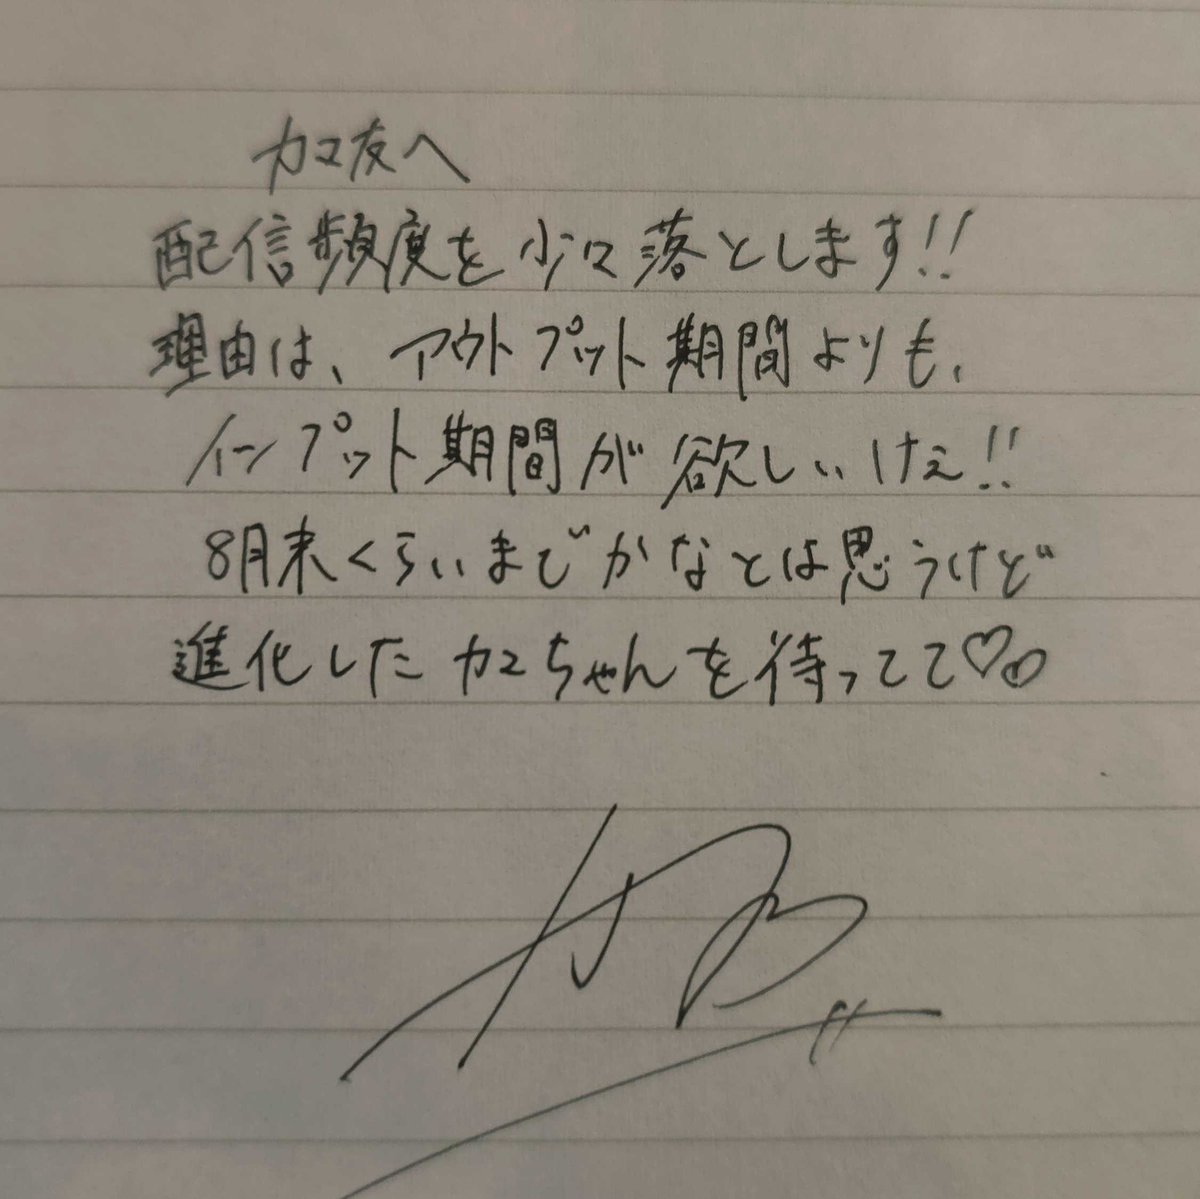 カマ友へ
配信頻度を少々落とします!!
理由は、アウトプット期間よりも、
インプット期間が欲しいけぇ!!
8月末くらいまでかなとは思うけど
進化したカマちゃんを待ってて♡